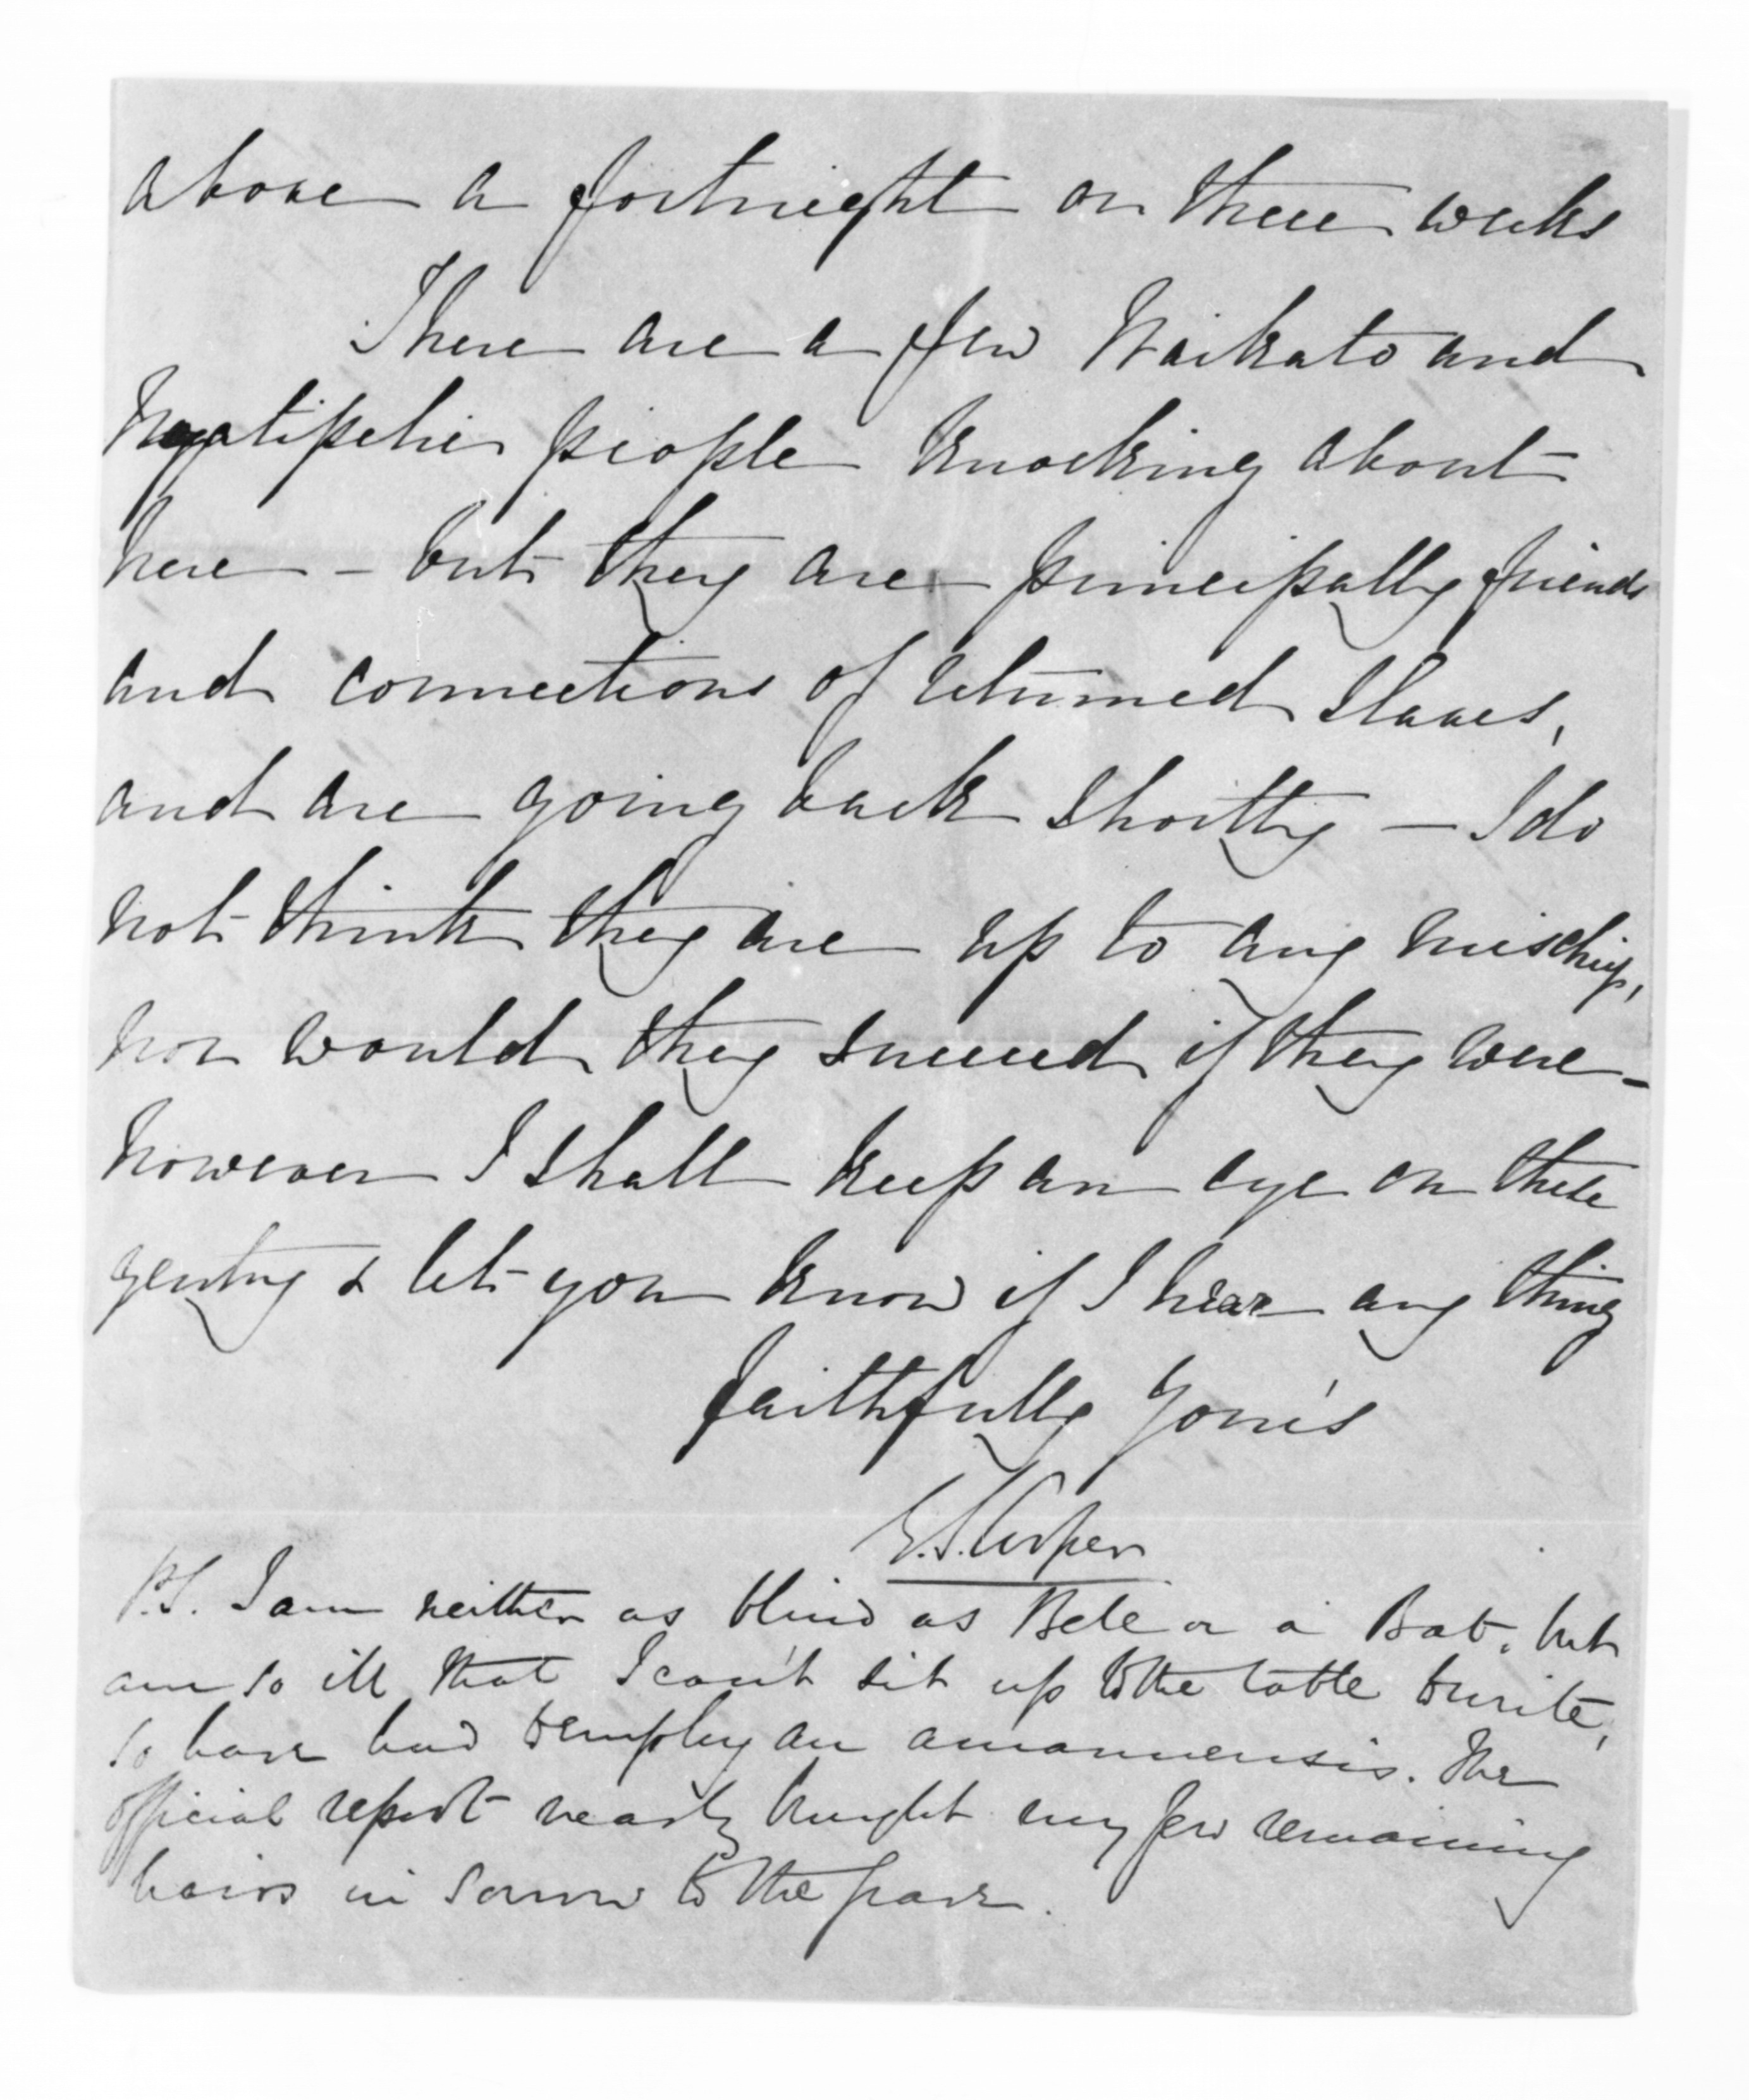 above a fortnight or three weeks
There are a few Waikato and
people knocking about
here - but they are principally friends
and connections of returned slaves,
and are going back shortly — I do
not think they are up to any mischief,
nor would they succeed if they were -
however I shall keep an eye on these
gentry & let you know if I hear any thing
Faithfully Yours
G.S. Cooper
P.S. I am neither as blind as or a Bat, but
am so ill that I can't sit up to the table to write,
so have had to employ an amanuensis. The
official report nearly brought my few remaining
hairs in sorrow to the grave.